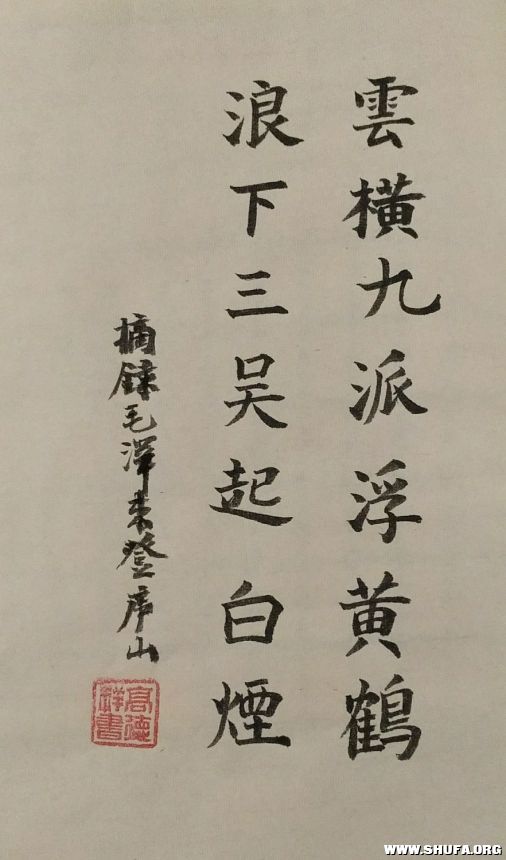 雲橫九派浮黄鶴
浪下三吴起白煙
摘錄毛澤东登庐山
高德祥書
WWW.SHUFA.ORG